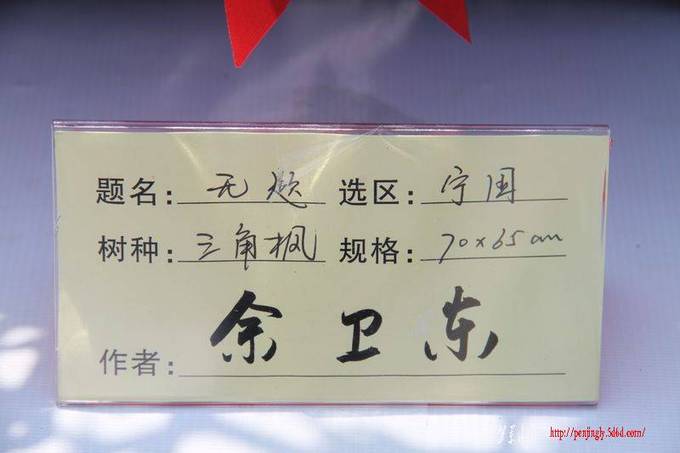 题名: 无题 选区: 宁国
树种: 三角枫 规格: 70x65cm
作者: 余卫东
http://penjingly.5d6d.com/